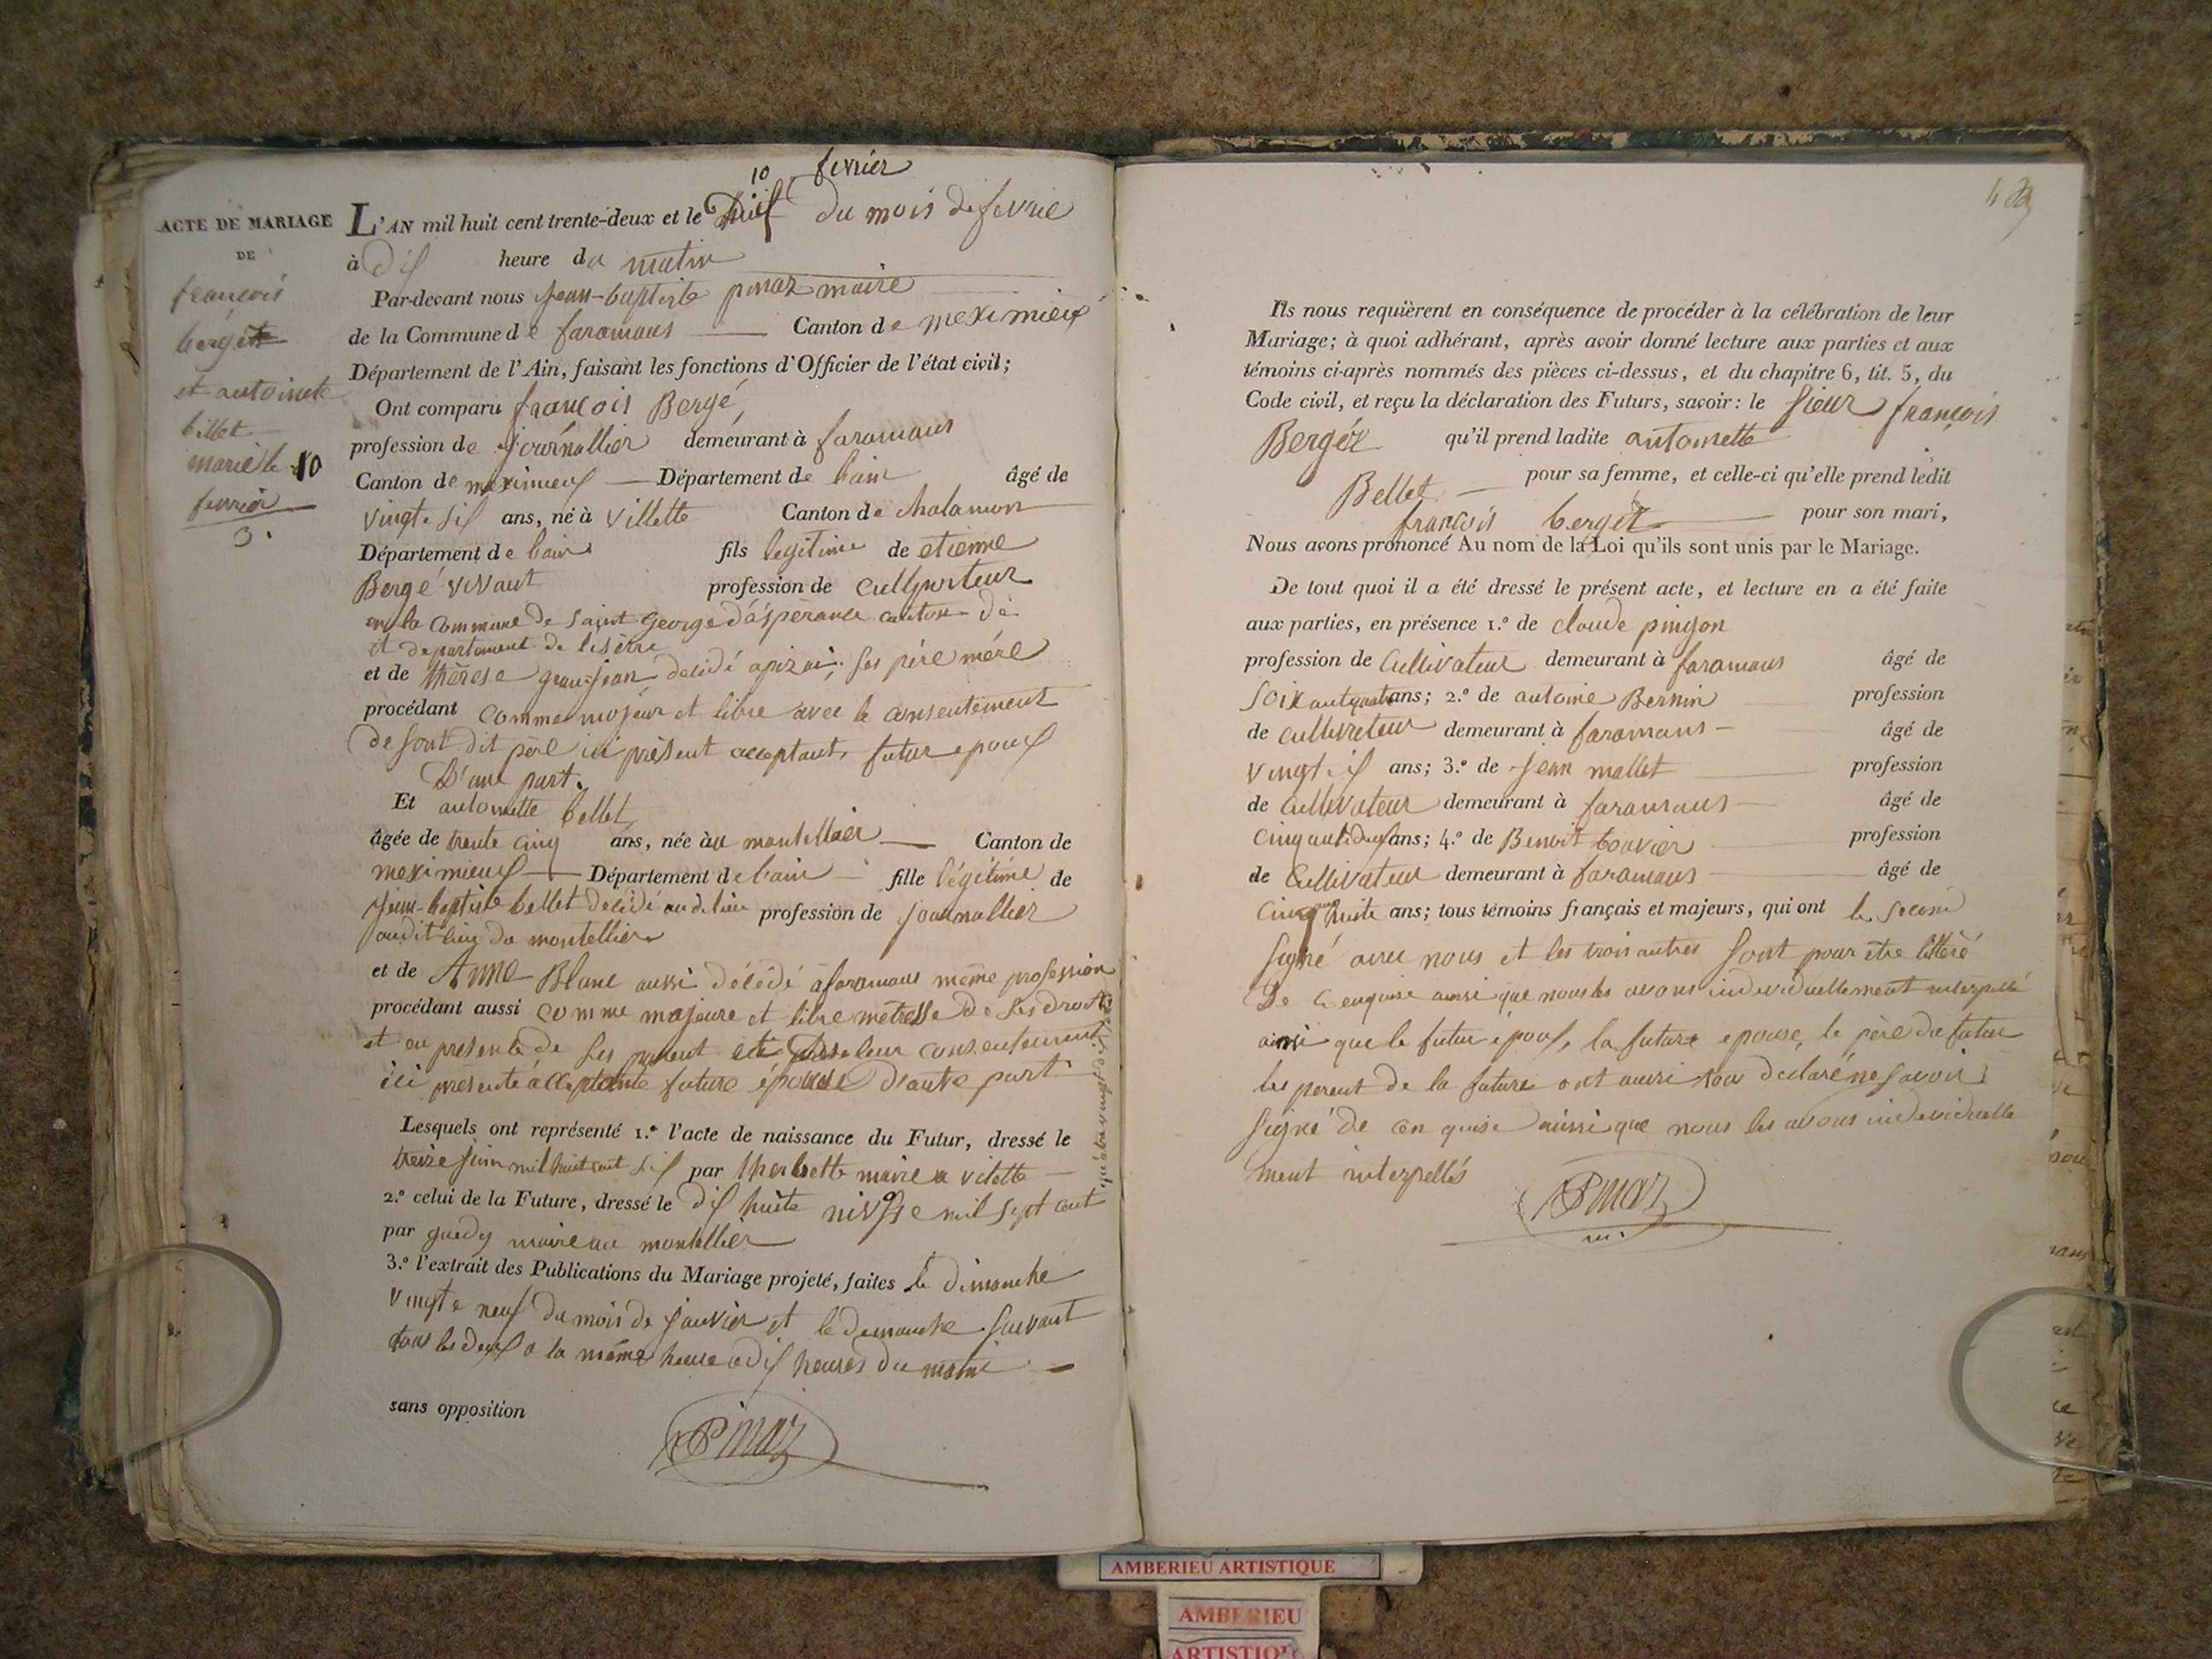 ACTE DE MARIAGE
DE
françois
bergé
et antoinete
billet
marié le 10
fevrier
3.
10 fevrier
L'AN mil huit cent trente-deux et le Dix du mois de fevrie
à dix heure du matin
Par-devant nous jean-baptiste pinaz maire
de la Commune de faramans Canton de meximieux
Département de l'Ain, faisant les fonctions d'Officier de l'état civil;
Ont comparu françois Bergé
profession de journallier demeurant à faramans
Canton de meximieux Département de lain âgé de
vingt six ans, né à villette Canton de chalamon
Département de lain fils legitime de etienne
Bergé vivant profession de
en la Commune de saint george d'éspérance canton de
et departement de lisère
et de thérese grau-jean décidé ses père mére
procédant comme majeur et libre avec le consentement
de sont dit père ici présent acceptant, futur epoux
D'une part.
Et antoinette bellet
âgée de trente cinq ans, née au montellier Canton de
meximieux Département de lain fille légitime de
jean-baptiste bellet décidé au dit lieu profession de journallier
audit lieu du montellier
et de Anne Blanc aussi décédé a faramans méme profession
procédant aussi comme majeure et libre métresse de ses droits
et en presente de ses parent leur consentement
ici présente acceptante future épouse d'autre part
Lesquels ont représenté 1.º l'acte de naissance du Futur, dressé le
treize juin mil huit cent six par maire a vilette
2.º celui de la Future, dressé le dix huite nivose mil sept cent
par maire au montellier
3.º l'extrait des Publications du Mariage projeté, faites le dimanche
vingte neuf du mois de janvier et le dimanche suivant
tous les deux a la méme heure a dix heures du matin
sans opposition
Pinaz
Ils nous requièrent en conséquence de procéder à la célébration de leur
Mariage; à quoi adhérant, après avoir donné lecture aux parties et aux
témoins ci-après nommés des pièces ci-dessus, et du chapitre 6, tit. 5, du
Code civil, et reçu la déclaration des Futurs, savoir: le sieur françois
Bergér qu'il prend ladite antoinette
Bellet pour sa femme, et celle-ci qu'elle prend ledit
françois bergér pour son mari,
Nous avons prononcé Au nom de la Loi qu'ils sont unis par le Mariage.
De tout quoi il a été dressé le présent acte, et lecture en a été faite
aux parties, en présence 1.º de claude pingon
profession de Cultivateur demeurant à faramans âgé de
ans; 2.º de antoine Bernin profession
de cultivateur demeurant à faramans âgé de
vingt six ans; 3.º de jean mallet profession
de Cultivateur demeurant à faramans âgé de
ans; 4.º de Benoit bouvier profession
de Cultivateur demeurant à faramans âgé de
cinq huite ans; tous témoins français et majeurs, qui ont le second
signé avec nous et les trois autres sont pour étre litteré
De ce enquise ainsi que nous les avons individuellement interpellé
ainsi que le futur epoux, la future epouse, le père du futur
les perent de la future ont aussi tou declaré ne savoir
signé de en quise ainsi que nous les avons individuelle
ment interpellés
Pinaz
AMBERIEU ARTISTIQUE
AMBERIEU
ARTISTIQUE